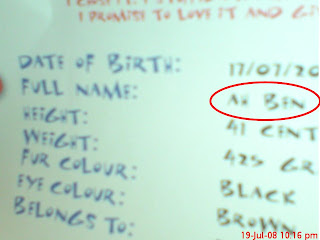 I PROMISE TO LOVE IT AND
DATE OF BIRTH: 17/07/20
FULL NAME: AH BEN
HEIGHT: 41 CENT
WEIGHT: 425 GR
FUR COLOUR: BLACK
EYE COLOUR: BROWN
BELONGS TO:
19-Jul-08 10:16 pm